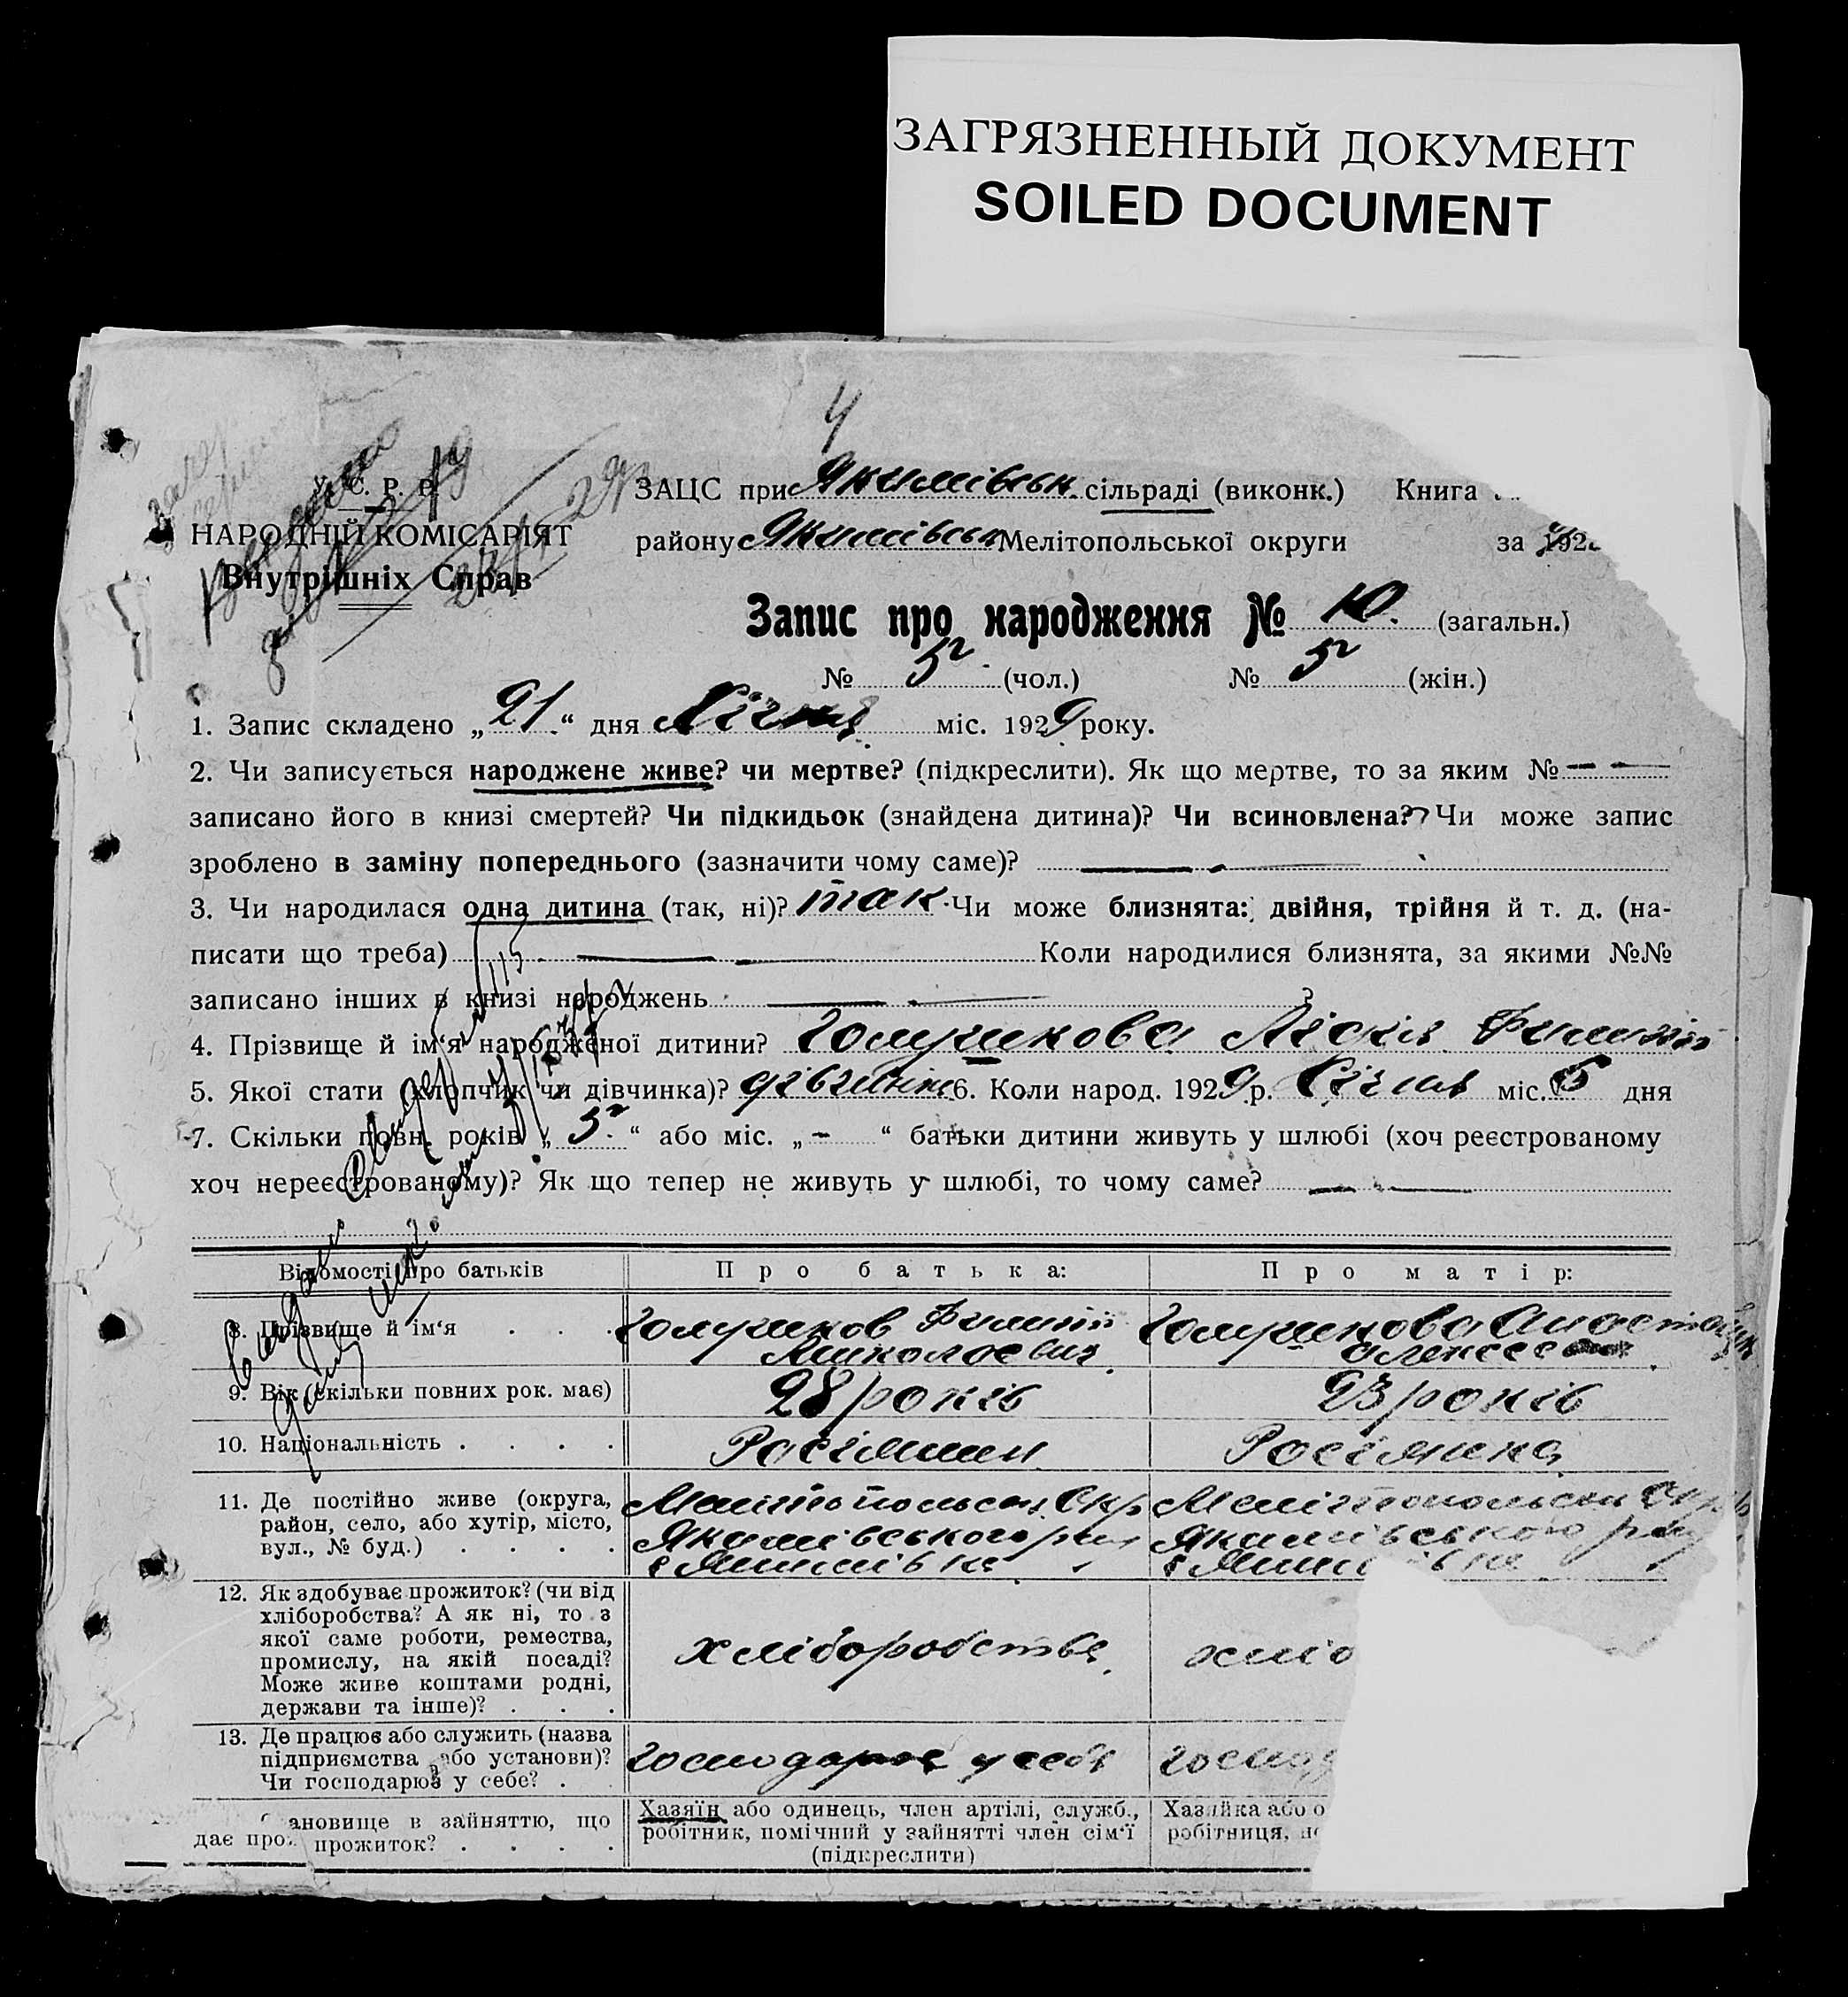 ЗАГРЯЗНЕННЫЙ ДОКУМЕНТ
SOILED DOCUMENT
4
У. С. Р. Р.
НАРОДНІЙ КОМІСАРІЯТ
Внутрішніх Справ
ЗАЦС при Якимівськ. сільраді (виконк.) Книга
району Якимівськ Мелітопольської округи за 192
Запис про народження № 10. (загальн.)
№ 5 (чол.) № 5 (жін.)
1. Запис складено „21“ дня Січня міс. 1929 року.
2. Чи записується народжене живе? чи мертве? (підкреслити). Як що мертве, то за яким № — —
записано його в книзі смертей? Чи підкидьок (знайдена дитина)? Чи всиновлена? Чи може запис
зроблено в заміну попереднього (зазначити чому саме)? —
3. Чи народилася одна дитина (так, ні)? так. Чи може близнята: двійня, трійня й т. д. (на-
писати що треба) — Коли народилися близнята, за якими №№
записано інших в книзі народжень — ?
4. Прізвище й ім‘я народженої дитини? Лідія
5. Якої стати (хлопчик чи дівчинка)? дівчинка 6. Коли народ. 1929 р. Січня міс. 5 дня
7. Скільки повн. років „5“ або міс. „-“ батьки дитини живуть у шлюбі (хоч реєстрованому
хоч нереєстрованому)? Як що тепер не живуть у шлюбі, то чому саме? —
Відомості про батьків Про батька: Про матір:
8. Прізвище й ім‘я Филип Миколаєвич
9. Вік (скільки повних рок. має) 28 років 23 років
10. Національність Росіянин Росіянка
11. Де постійно живе (округа, район, село, або хутір, місто, вул., № буд.)
Мелітопольськ. Окр Якимівського рай с Якимівка
Мелітопольськ Окр Якимівського рай с
12. Як здобуває прожиток? (чи від
хліборобства? А як ні, то з
якої саме роботи, ремества,
промислу, на якій посаді?
Може живе коштами родні,
держави та інше)?
хліборобства
хліб
13. Де працює або служить (назва
підприємства або установи)?
Чи господарює у себе?
господарює у себе
господ
ановище в зайняттю, що
дає прожиток?
Хазяїн або одинець, член артілі, служб.,
робітник, помічний у зайнятті член сім‘ї
(підкреслити)
Хазяйка або о
робітниця,